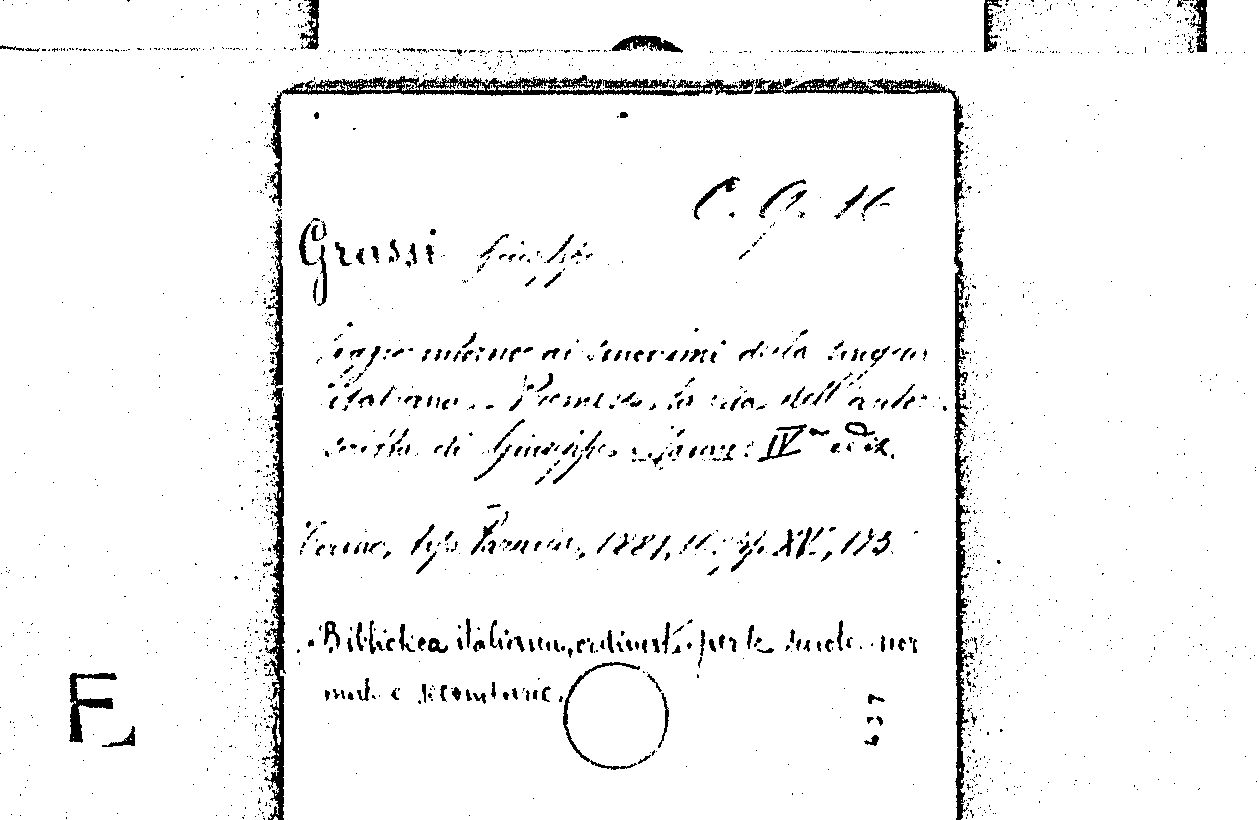 C. G. 16
Grassi Giuseppe
Saggio intorno ai sinonimi della lingua
italiana. Premessa la vita dell'autore
scritta di Giuseppe IVª ediz.
Torino, tip. Paravia, 1881, 16, pp. XV, 173.
Biblioteca italiana, ordinata per le scuole nor
mali e secondarie.
437
E